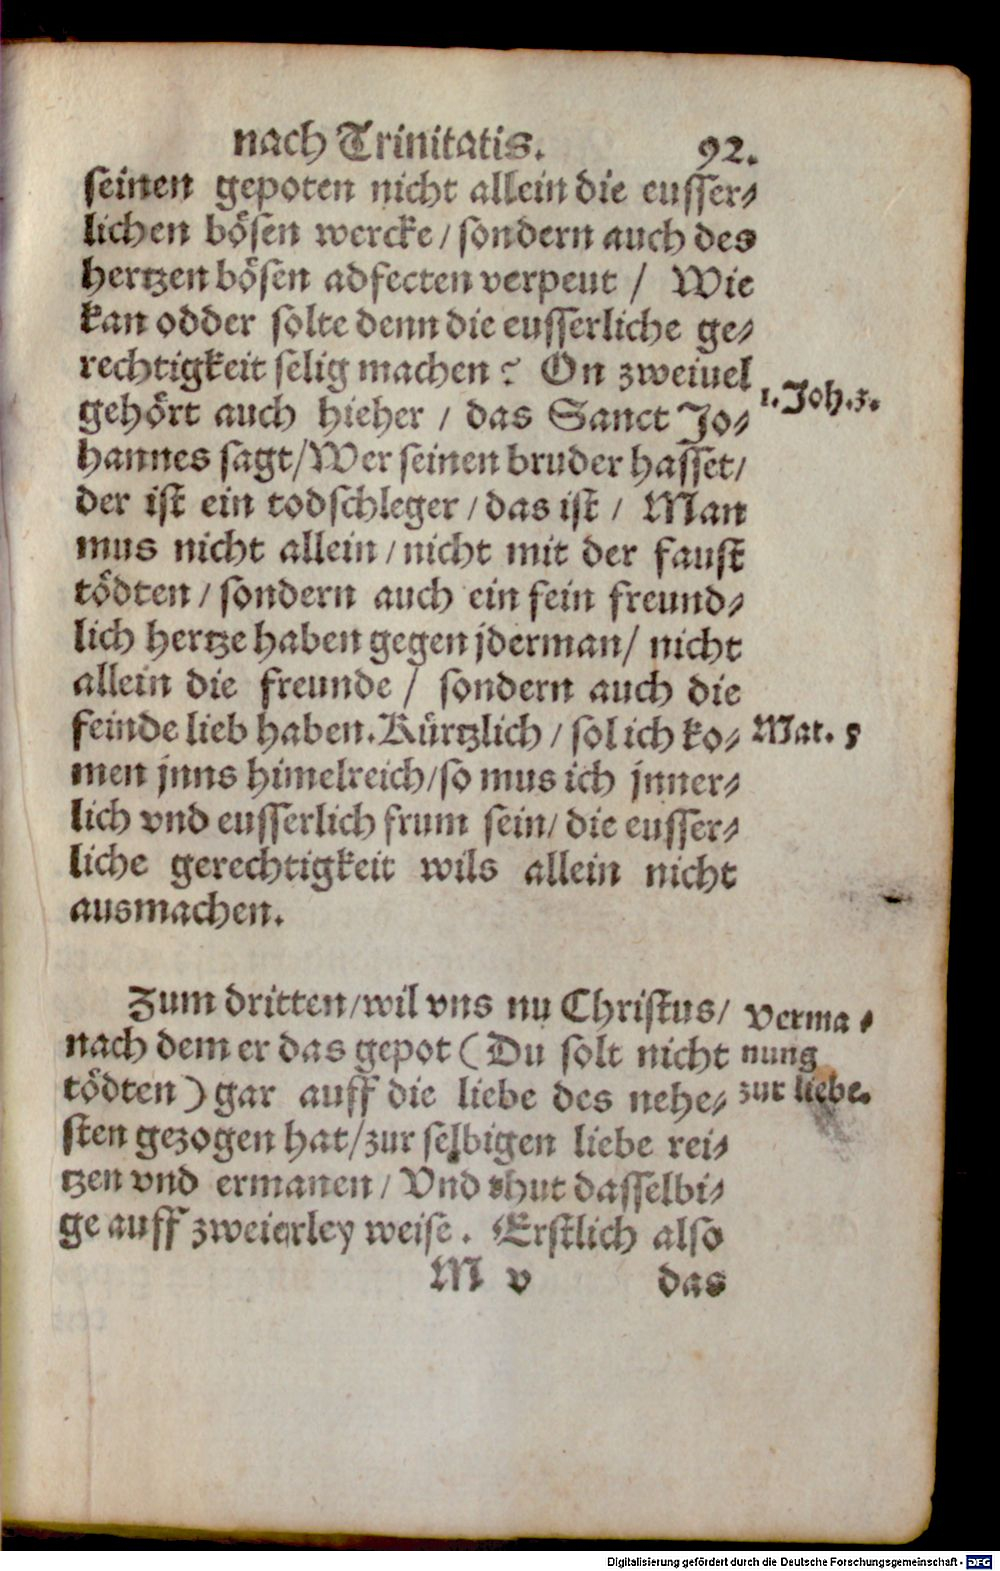 nach Trinitatis. 92.
seinen gepoten nicht allein die eusser⸗
lichen bösen wercke / sondern auch des
hertzen bösen adfecten verpeut / Wie
kan odder solte denn die eusserliche ge⸗
rechtigkeit selig machen? On zweiuel
gehört auch hieher / das Sanct Jo⸗
1. Joh. 3.
hannes sagt / Wer seinen bruder hasset /
der ist ein todschleger / das ist / Man
mus nicht allein / nicht mit der faust
tödten / sondern auch ein fein freund⸗
lich hertze haben gegen jderman / nicht
allein die freunde / sondern auch die
feinde lieb haben. Kürtzlich / sol ich ko⸗
Mat. 5
men jnns himelreich / so mus ich jnner⸗
lich vnd eusserlich frum sein / die eusser⸗
liche gerechtigkeit wils allein nicht
ausmachen.
Zum dritten / wil vns nu Christus /
nach dem er das gepot (Du solt nicht
tödten) gar auff die liebe des nehe⸗
sten gezogen hat / zur selbigen liebe rei⸗
tzen vnd ermanen / Vnd thut dasselbi⸗
ge auff zweierley weise. Erstlich also
Verma⸗
nung
zur liebe.
M v das
Digitalisierung gefördert durch die Deutsche Forschungsgemeinschaft - DFG